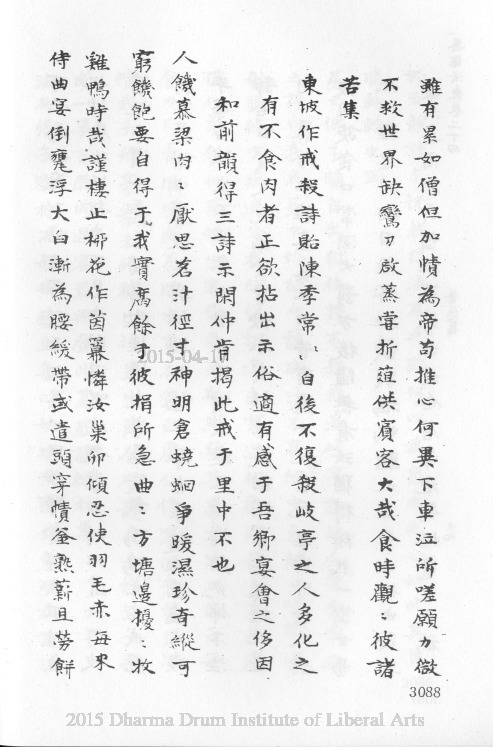 雖有累如僧但加幘為帝苟推心何異下車泣所嗟願力微
不救世界缺鸞刀啟蒸甞折葅供賓客大哉食時觀〻彼諸
苦集
東坡作戒殺詩貽陳季常〻自後不復殺岐亭之人多化之
有不食肉者正欲拈出示俗適有感于吾鄉宴會之侈因
和前韻得三詩示閑仲肯揭此戒于里中不也
人饑慕梁肉〻厭思茗汁徑寸神明倉蟯蛔爭暖濕珍奇縱可
窮饑飽要自得于我實腐餘于彼捐所急曲〻方塘邊擾〻牧
雞鴨時哉謹棲止柳花作茵羃憐汝巢卵傾忍使羽毛赤每來
侍曲宴倒甕浮大白漸為腰緩帶或遣頭穿幘釜熟薪且勞餅
3088
2015-04-10
2015 Dharma Drum Institute of Liberal Arts